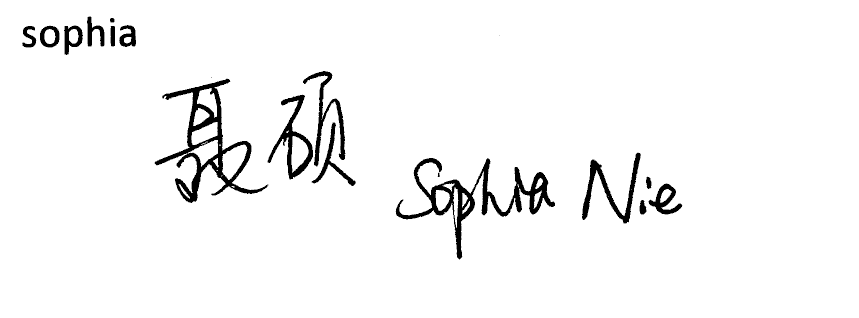 sophia
聂硕 Sophia Nie